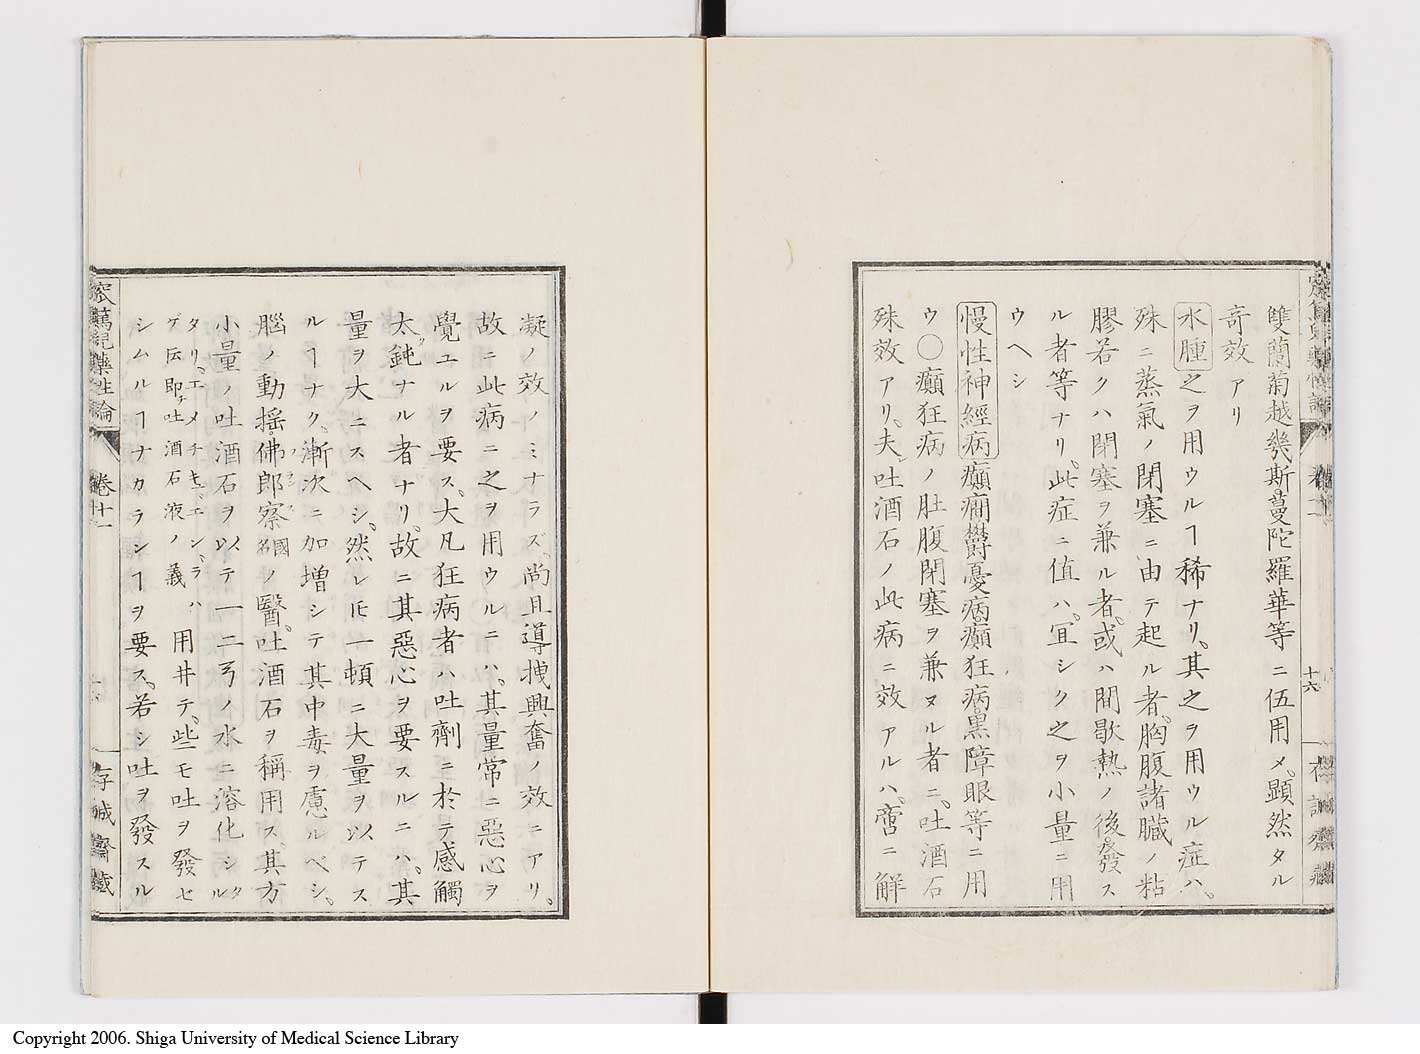 雙蘭菊越幾斯蔓陀羅華等ニ伍用メ顕然タル
奇效アリ
水腫之ヲ用ウルヿ稀ナリ。其之ヲ用ウル症ハ、
殊ニ蒸氣ノ閉塞ニ由テ起ル者。胸腹諸臓ノ粘
膠若クハ閉塞ヲ兼ル者。或ハ間歇熱ノ後發ス
ル者等ナリ。此症ニ値ハ、冝シク之ヲ小量ニ用
ウヘシ
慢性神經病癲癎欝憂病癲狂病黒障眼等ニ用
ウ〇癲狂病ノ肚腹閉塞ヲ兼ヌル者ニ、吐酒石
殊效アリ。夫吐酒石ノ此病ニ效アルハ、啻ニ解
十六
凝ノ效ノミナラズ、尚且導拽興奮ノ效ニアリ。
故ニ此病ニ之ヲ用ウルニハ、其量常ニ惡心ヲ
覺ユルヲ要ス。大凡狂病者ハ吐劑ニ於テ感觸
太ダ鈍ナル者ナリ。故ニ其惡心ヲ要スルニハ、其
量ヲ大ニスヘシ。然レ𪜈一頓ニ大量ヲ以テス
ルヿナク、漸次ニ加増シテ其中毒ヲ慮ルベシ。
腦ノ動揺佛郎察國名ノ醫。吐酒石ヲ稱用ス。其方
小量ノ吐酒石ヲ以テ一二弖ノ水ニ溶化シタル
タリ、エメチキ、エン、ラハ
ゲ伝即チ吐酒石液ノ義
用井テ、些モ吐ヲ發セ
シムルヿナカランヿヲ要ス。若シ吐ヲ發スル
窊篤児藥性論
卷十一
存誠齋藏